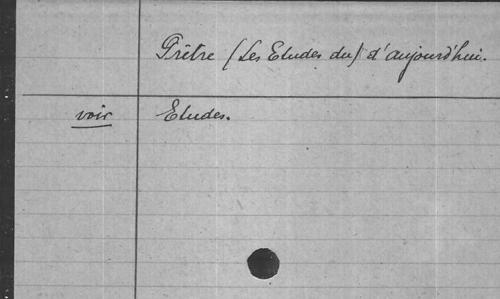 Prêtre (Les Etudes du) d'aujourd'hui.
voir Etudes.